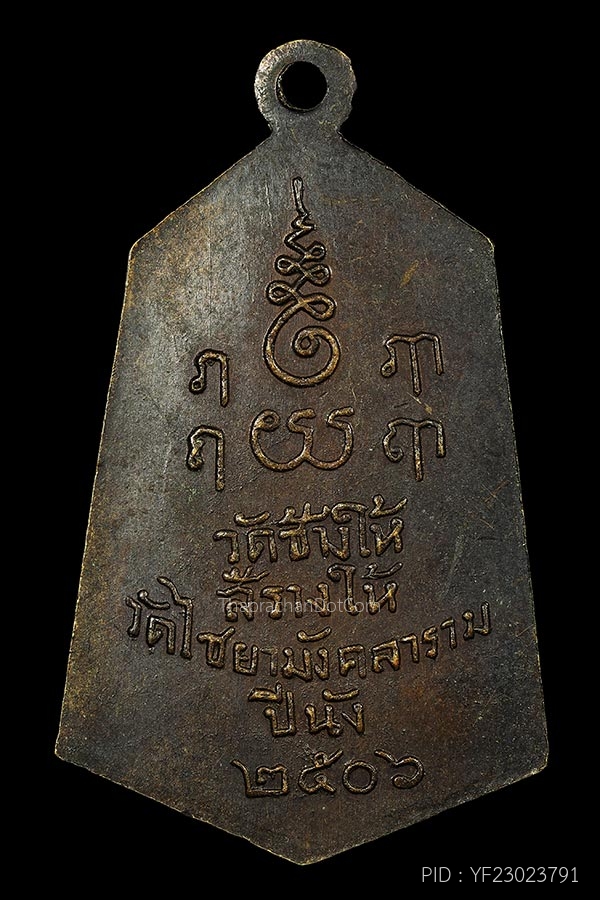 ฦ ฦๅ
ฤ ฤๅ
วัดช้างให้
ส้รางให้
ThaprachanDotCom
วัดไชยามังคลาราม
ปีนัง
๒๕๐๖
PID : YF23023791